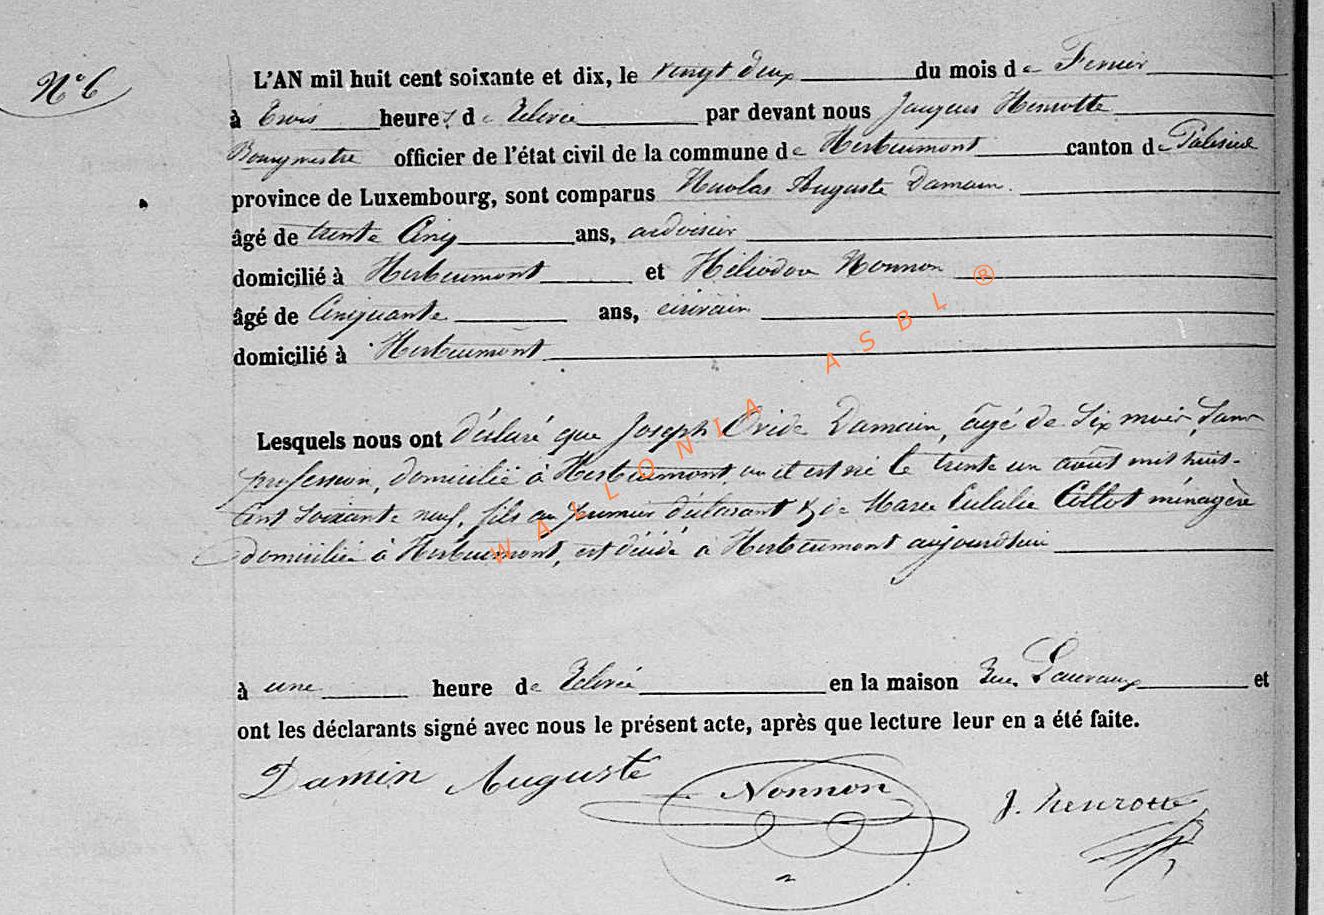 N° 6
L'AN mil huit cent soixante et dix, le vingt deux du mois de Fevrier
à trois heures de Relevée par devant nous Jacques Henrotte
Bourgmestre officier de l'état civil de la commune de Herbeumont canton de Paliseul
province de Luxembourg, sont comparus Nicolas Auguste Damain
âgé de trente Cinq ans, ardoisier
domicilié à Herbeumont et Héliodore Nonnon
âgé de Cinquante ans, écrivain
domicilié à Herbeumont
Lesquels nous ont déclaré que Joseph Ovide Damain, âgé de Six mois, Sans
profession, domicilié à Herbeumont, où il est né le trente un août mil huit-
Cent Soixante neuf, fils du premier déclarant & de Marie Eulalie Collot ménagère
domiciliée à Herbeumont, est décédé à Herbeumont aujourd'hui
à une heure de Relevée en la maison Rue Lauvaux et
ont les déclarants signé avec nous le présent acte, après que lecture leur en a été faite.
Damin Auguste Nonnon J. Henrotte
WALLONIA ASBL ®